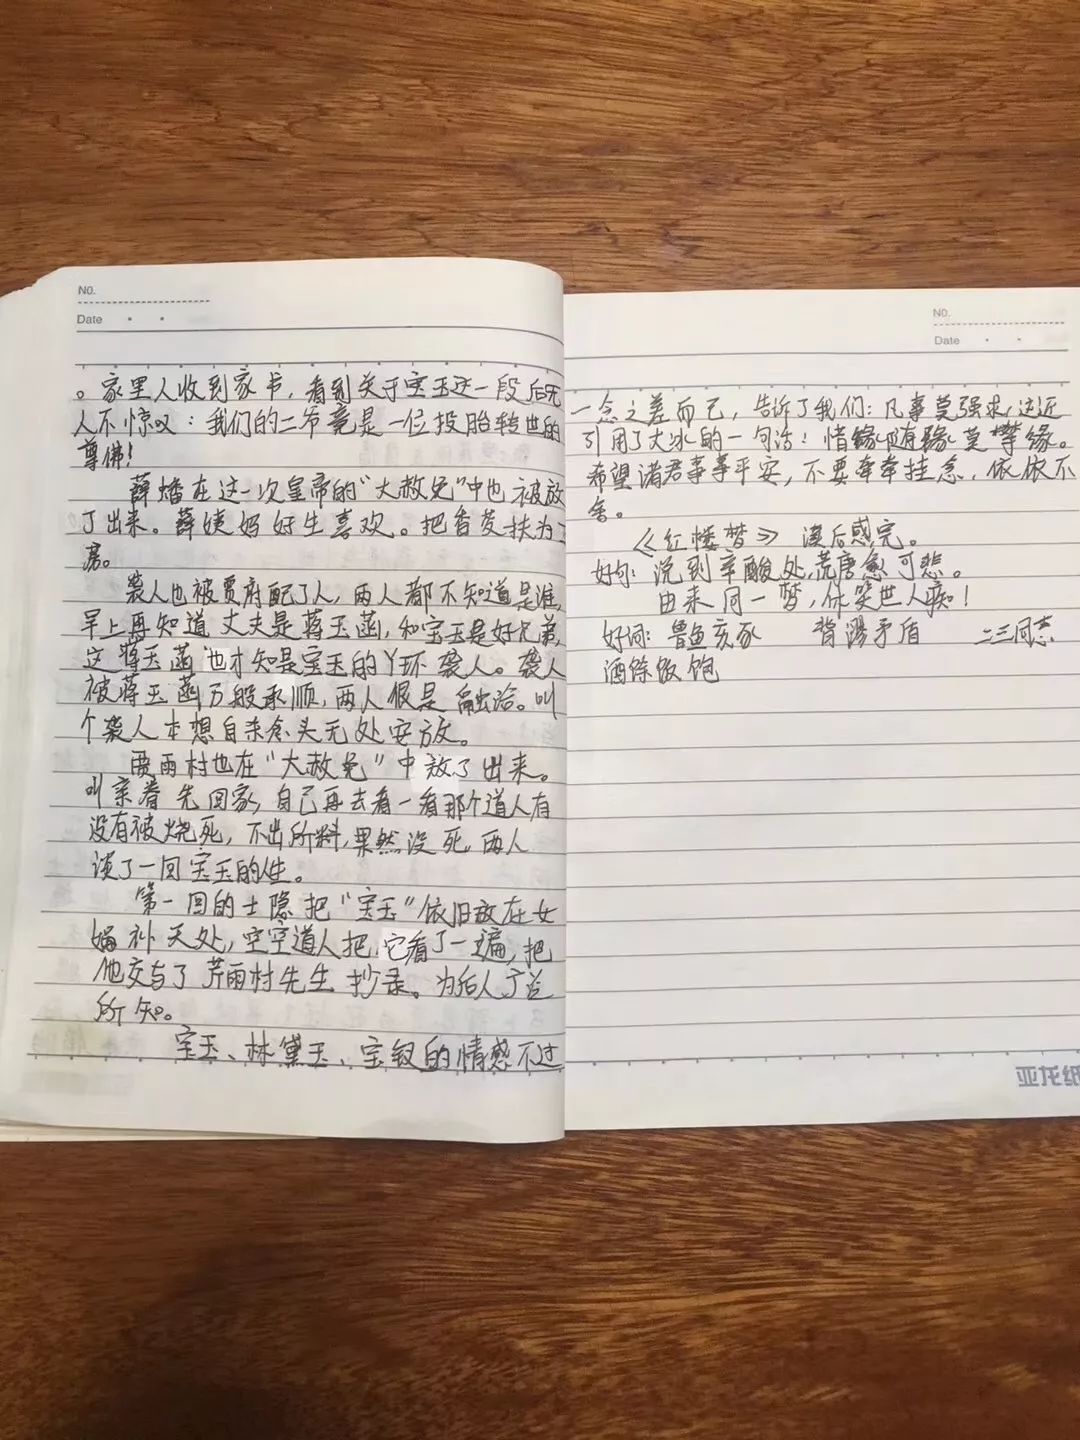 NO.
Date
。家里人收到家书，看到关于宝玉这一段后无
人不惊叹：我们的二爷竟是一位投胎转世的
尊佛！
薛蟠在这一次皇帝的“大赦免”中也被放
了出来。薛姨妈好生喜欢。把香菱扶为正
房。
袭人也被贾府配了人，两人都不知道是谁，
早上再知道丈夫是蒋玉菡，和宝玉是好兄弟，
这蒋玉菡也才知是宝玉的丫环袭人。袭人
被蒋玉菡万般承顺，两人很是融洽。叫
个袭人本想自杀念头无处安放。
贾雨村也在“大赦免”中放了出来。
叫亲眷先回家，自己再去看一看那个道人有
没有被烧死，不出所料，果然没死，两人
谈了一回宝玉的人生。
第一回的士隐把“宝玉”依旧放在女
娲补天处，空空道人把它看了一遍，把
他交与了芹雨村先生抄录。为后人广益
所知。
宝玉、林黛玉、宝钗的情感不过
NO.
Date
一念之差而已，告诉了我们：凡事莫强求，这近
引用了大冰的一句话：惜缘随缘莫攀缘。
希望诸君事事平安，不要牵牵挂念，依依不
舍。
《红楼梦》 读后感完。
好句：说到辛酸处，荒唐愈可悲。
由来同一梦，休笑世人痴！
好词：鲁鱼亥豕 背谬矛盾 二三同志
酒馀饭饱
亚龙纸